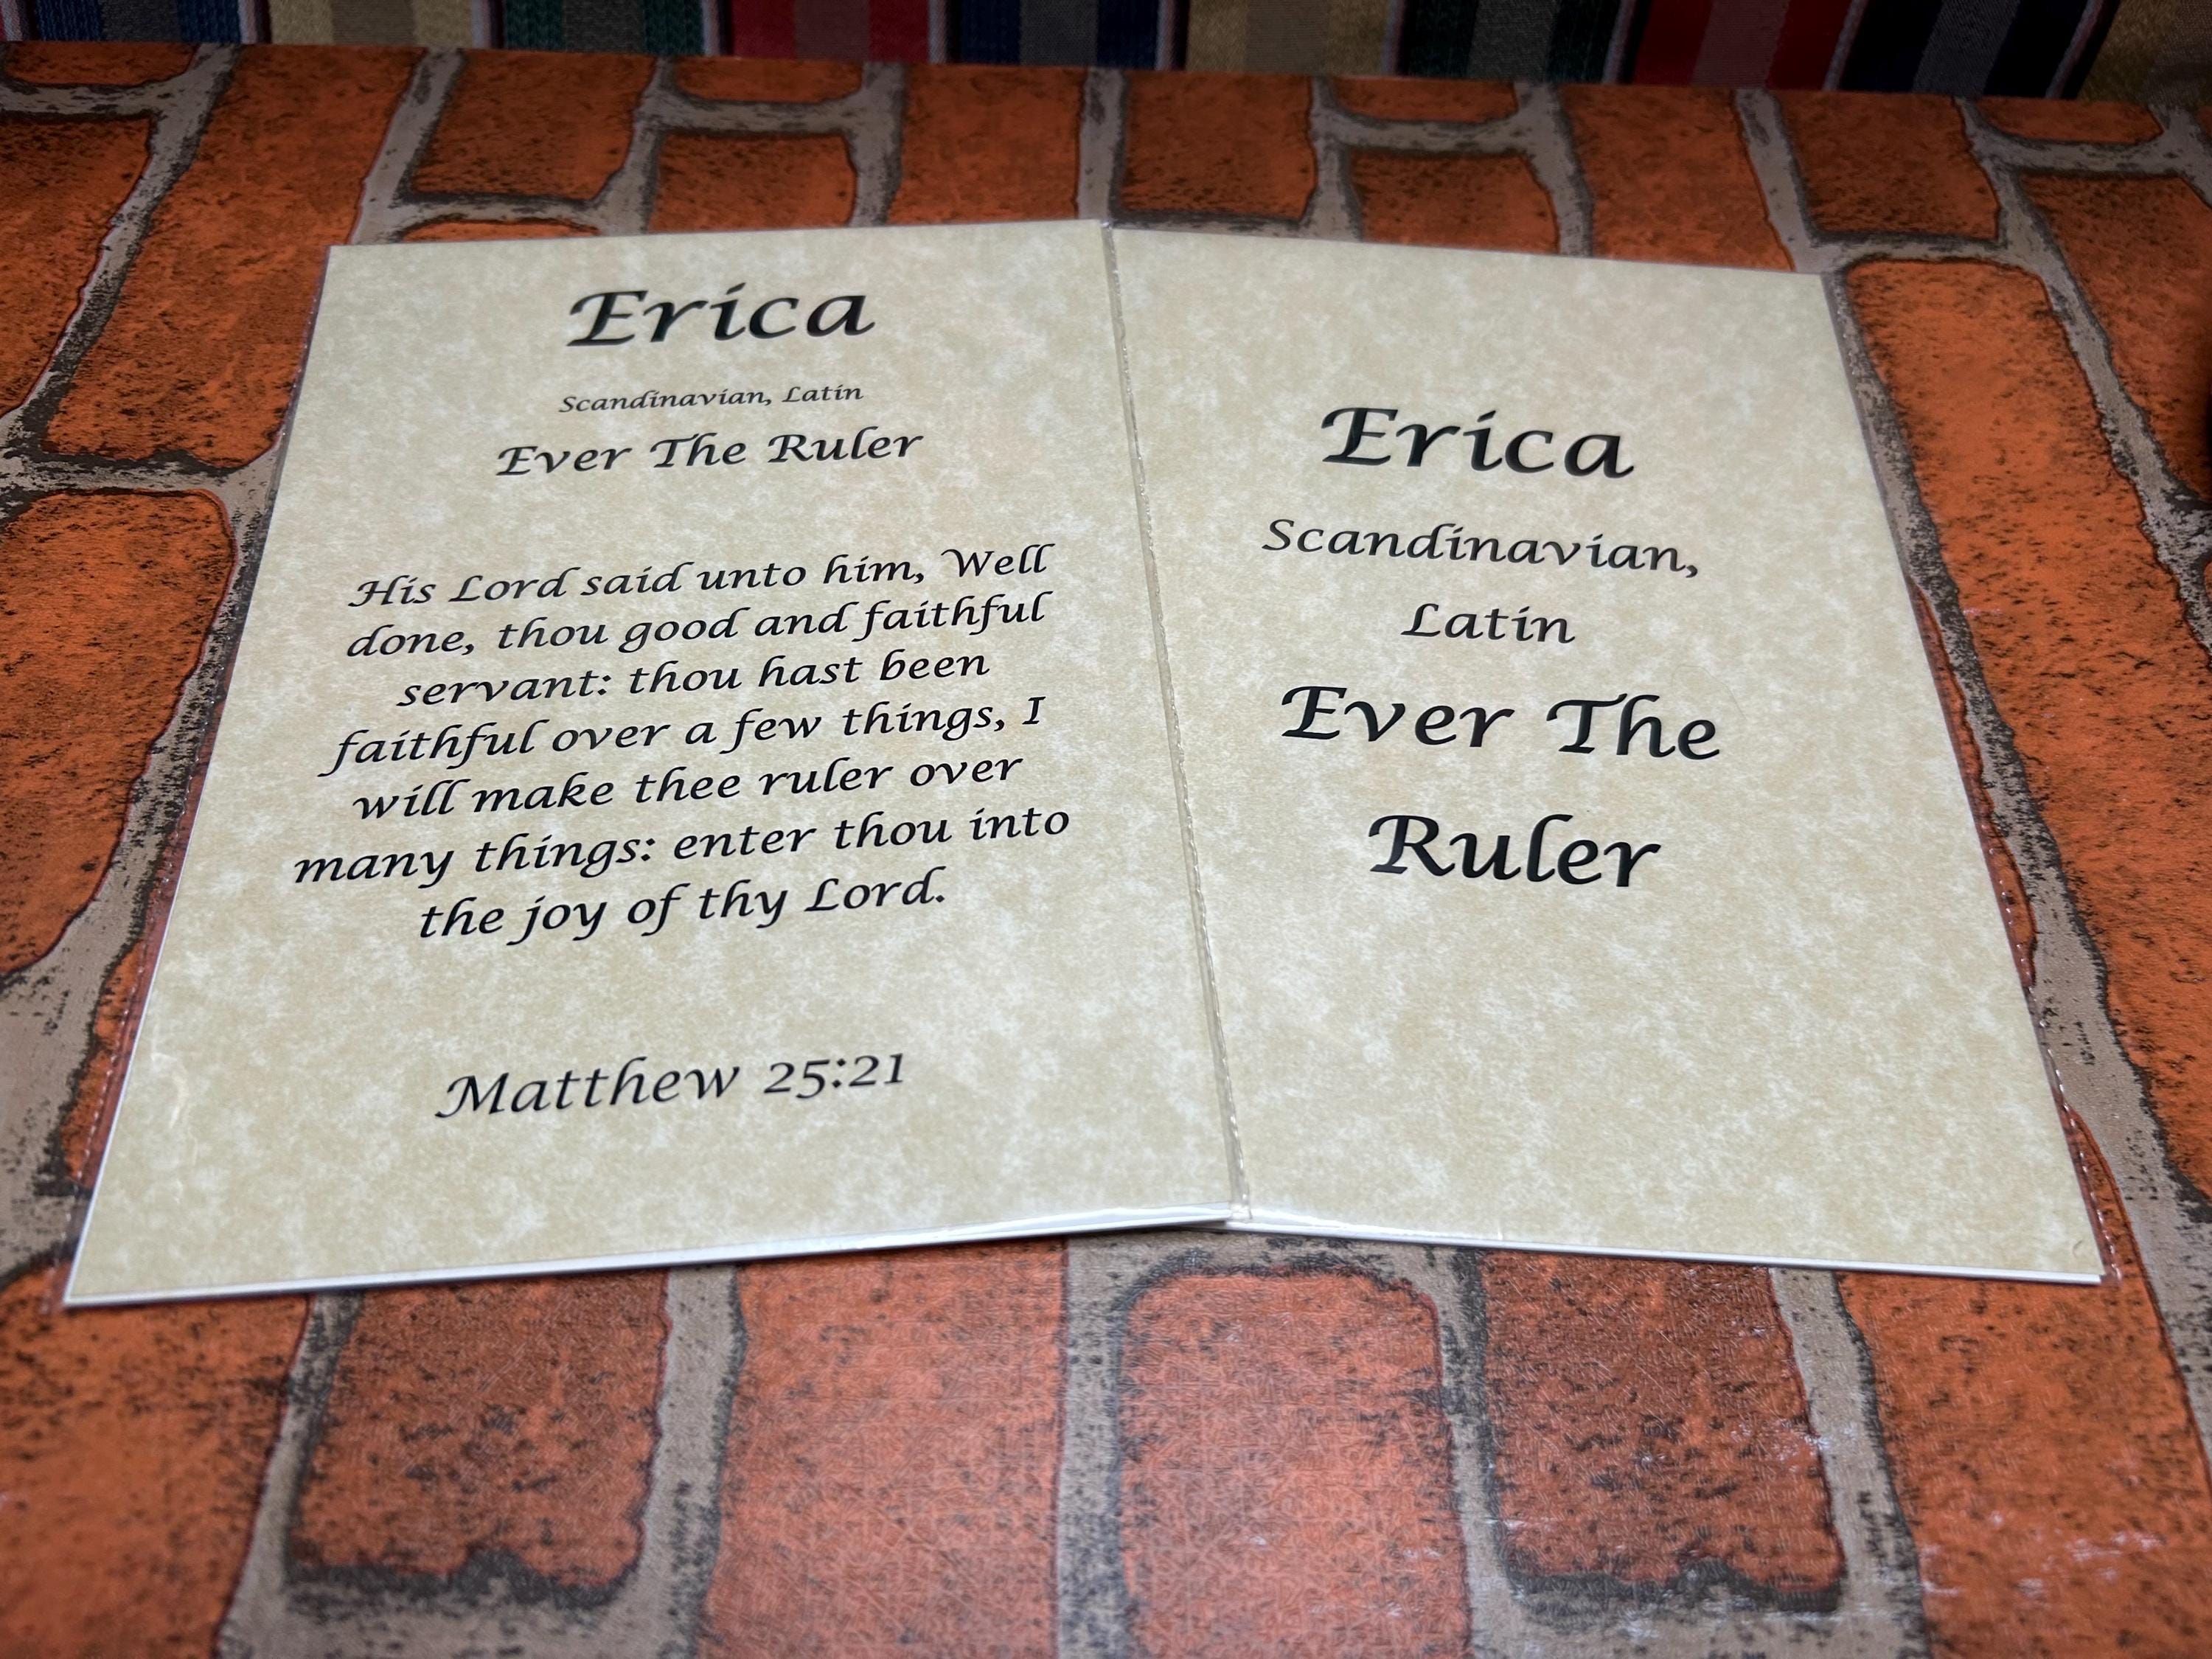 Erica
Scandinavian, Latin
Ever The Ruler
His Lord said unto him, Well
done, thou good and faithful
servant: thou hast been
faithful over a few things, I
will make thee ruler over
many things: enter thou into
the joy of thy Lord.
Matthew 25:21
Erica
Scandinavian,
Latin
Ever The
Ruler